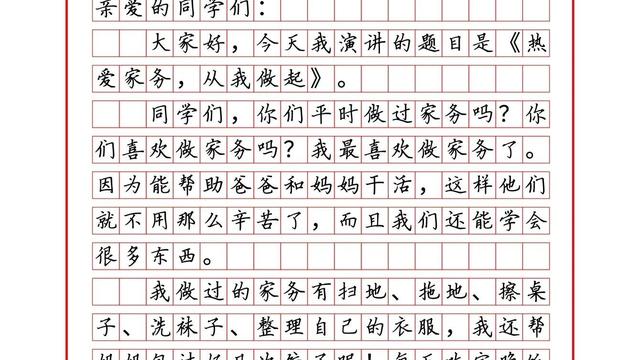 亲爱的同学们：
大家好，今天我演讲的题目是《热
爱家务，从我做起》。
同学们，你们平时做过家务吗？你
们喜欢做家务吗？我最喜欢做家务了。
因为能帮助爸爸和妈妈干活，这样他们
就不用那么辛苦了，而且我们还能学会
很多东西。
我做过的家务有扫地、拖地、擦桌
子、洗袜子、整理自己的衣服，我还帮
妈妈包过好几次饺子呢！每天吃完晚饭